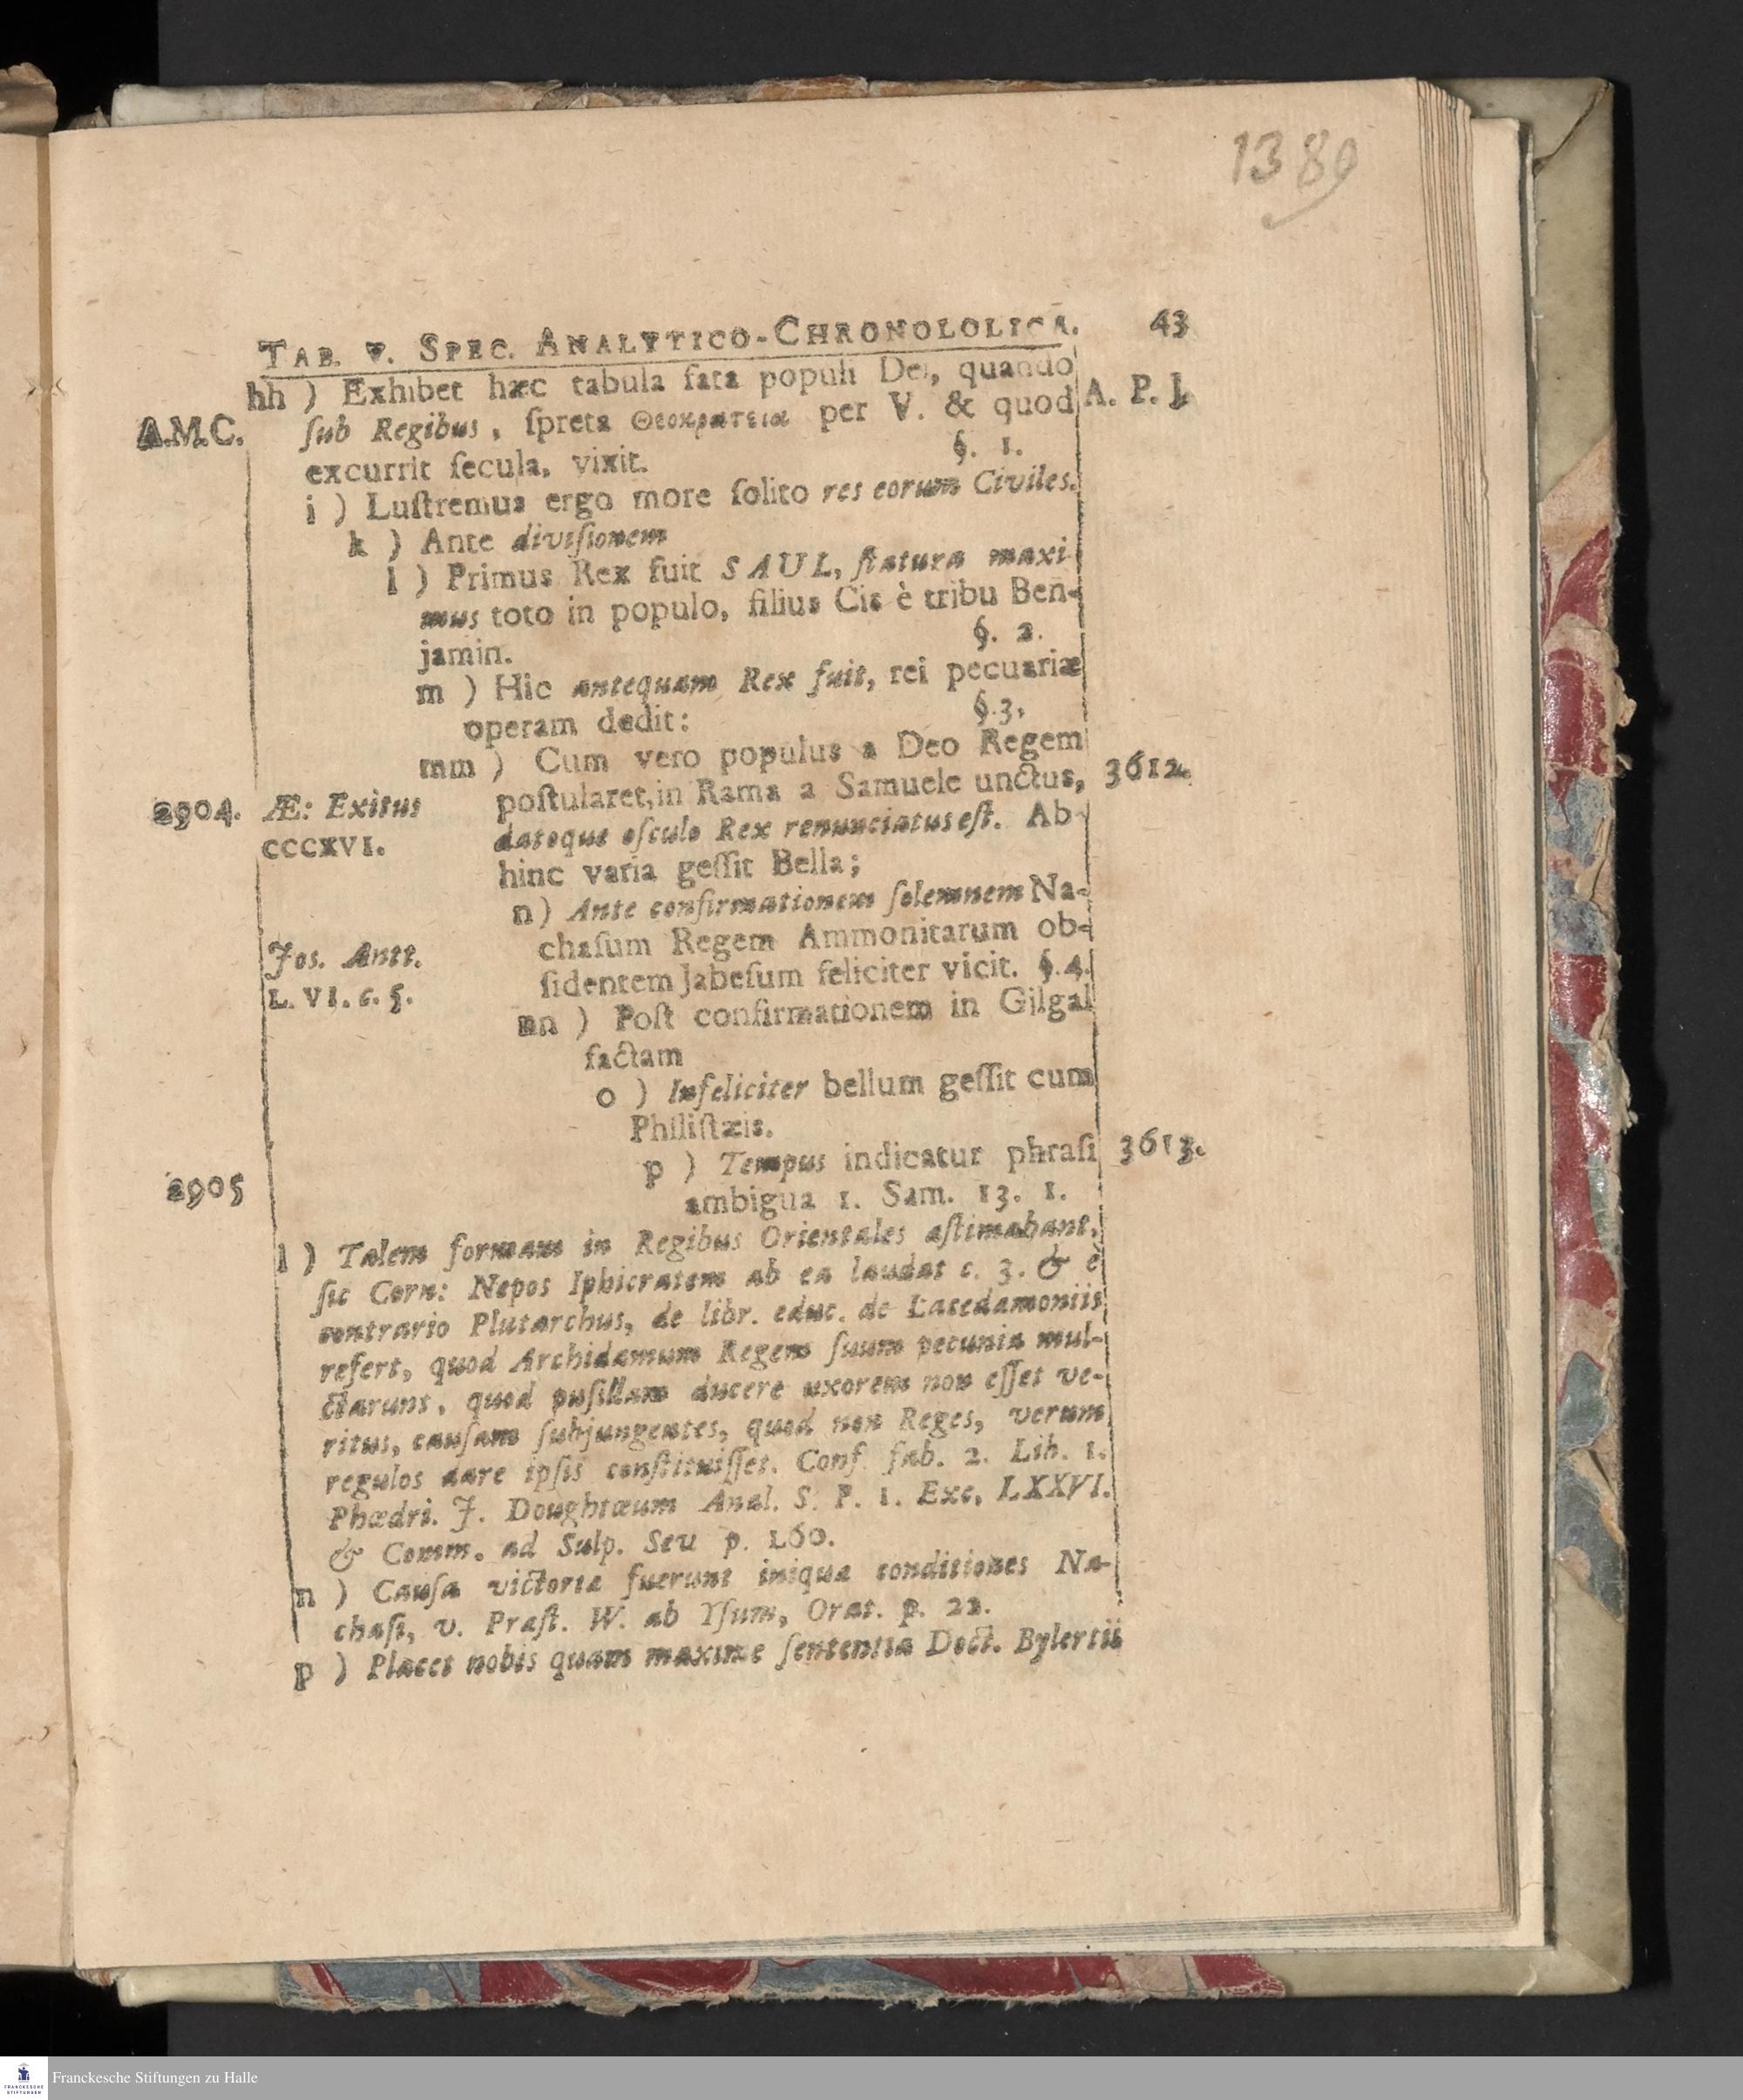 1389
TAB. V. SPEC. ANALYTICO-CHRONOLOLICA. 43
hh ) Exhibet hæc tabula fata populi Dei, quando
A.M.C. ſub Regibus, ſpreta Θεοκρατεια per V. & quod A. P. J.
excurrit ſecula, vixit. §. 1.
i ) Luſtremus ergo more ſolito res eorum Civiles.
k ) Ante diviſionem
l ) Primus Rex fuit SAUL, ſtatura maxi-
mus toto in populo, filius Cis è tribu Ben-
jamin. §. 2.
m ) Hic antequam Rex fuit, rei pecuariæ
operam dedit: §.3.
mm ) Cum vero populus a Deo Regem
2904. Æ: Exitus poſtularet, in Rama a Samuele unctus, 3612.
CCCXVI. datoque oſculo Rex renunciatus eſt. Ab-
hinc varia geſſit Bella;
n) Ante confirmationem ſolemnem Na-
Jos. Antt. chaſum Regem Ammonitarum ob-
L. VI. c. 5. ſidentem Jabeſum feliciter vicit. §.4.
nn ) Poſt confirmationem in Gilgal
factam
o ) Infeliciter bellum geſſit cum
Philiſtæis.
2905 p ) Tempus indicatur phraſi 3613.
ambigua 1. Sam. 13. 1.
l ) Talem formam in Regibus Orientales æſtimabant,
ſic Corn: Nepos Iphicratem ab ea laudat c. 3. & è
contrario Plutarchus, de libr. educ. de Lacedæmoniis
refert, quod Archidamum Regem ſuum pecunia mul-
ctarunt, quod puſillam ducere uxorem non eſſet ve-
ritus, cauſam ſubjungentes, quod non Reges, verum
regulos dare ipſis conſtituiſſet. Conf. fab. 2. Lib. 1.
Phædri. J. Doughtæum Anal. S. P. 1. Exc. LXXVI.
& Comm. ad Sulp. Seu p. 160.
n ) Cauſa victoriæ fuerunt iniquæ conditiones Na-
chaſi, v. Præſt. W. ab Yſum, Orat. p. 22.
p ) Placet nobis quam maxime ſententia Doct. Bylertii
Franckesche Stiftungen zu Halle